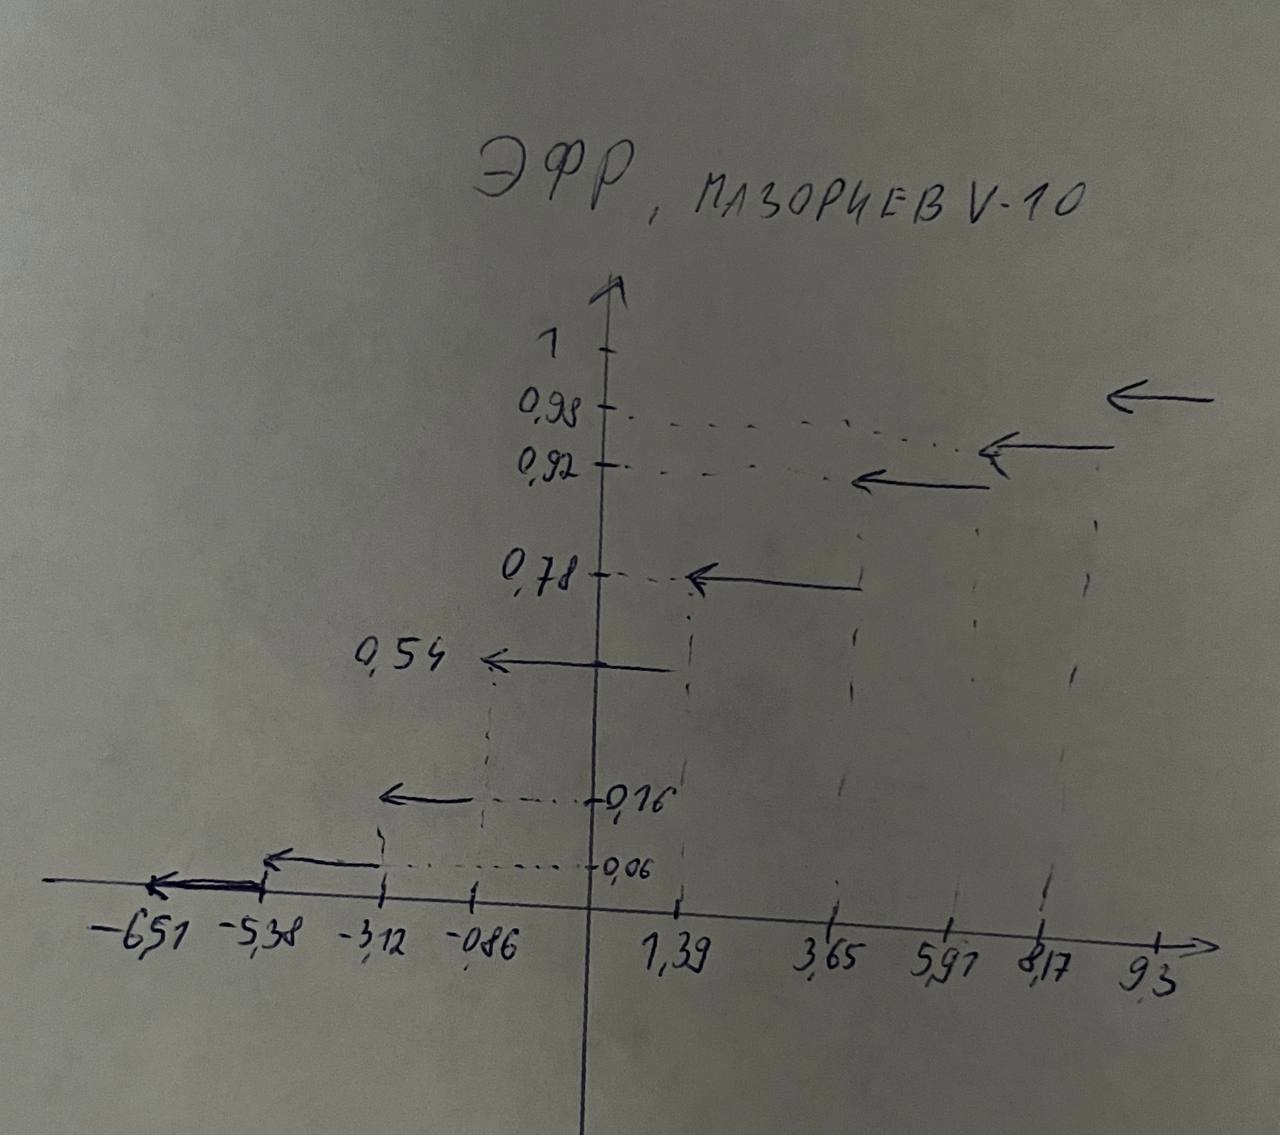 ЭФР, МАЗОРЧЕВ V-10
1
0,98
0,92
0,78
0,54
0,16
0,06
-6,51 -5,38 -3,12 -0,86 1,39 3,65 5,91 8,17 9,3